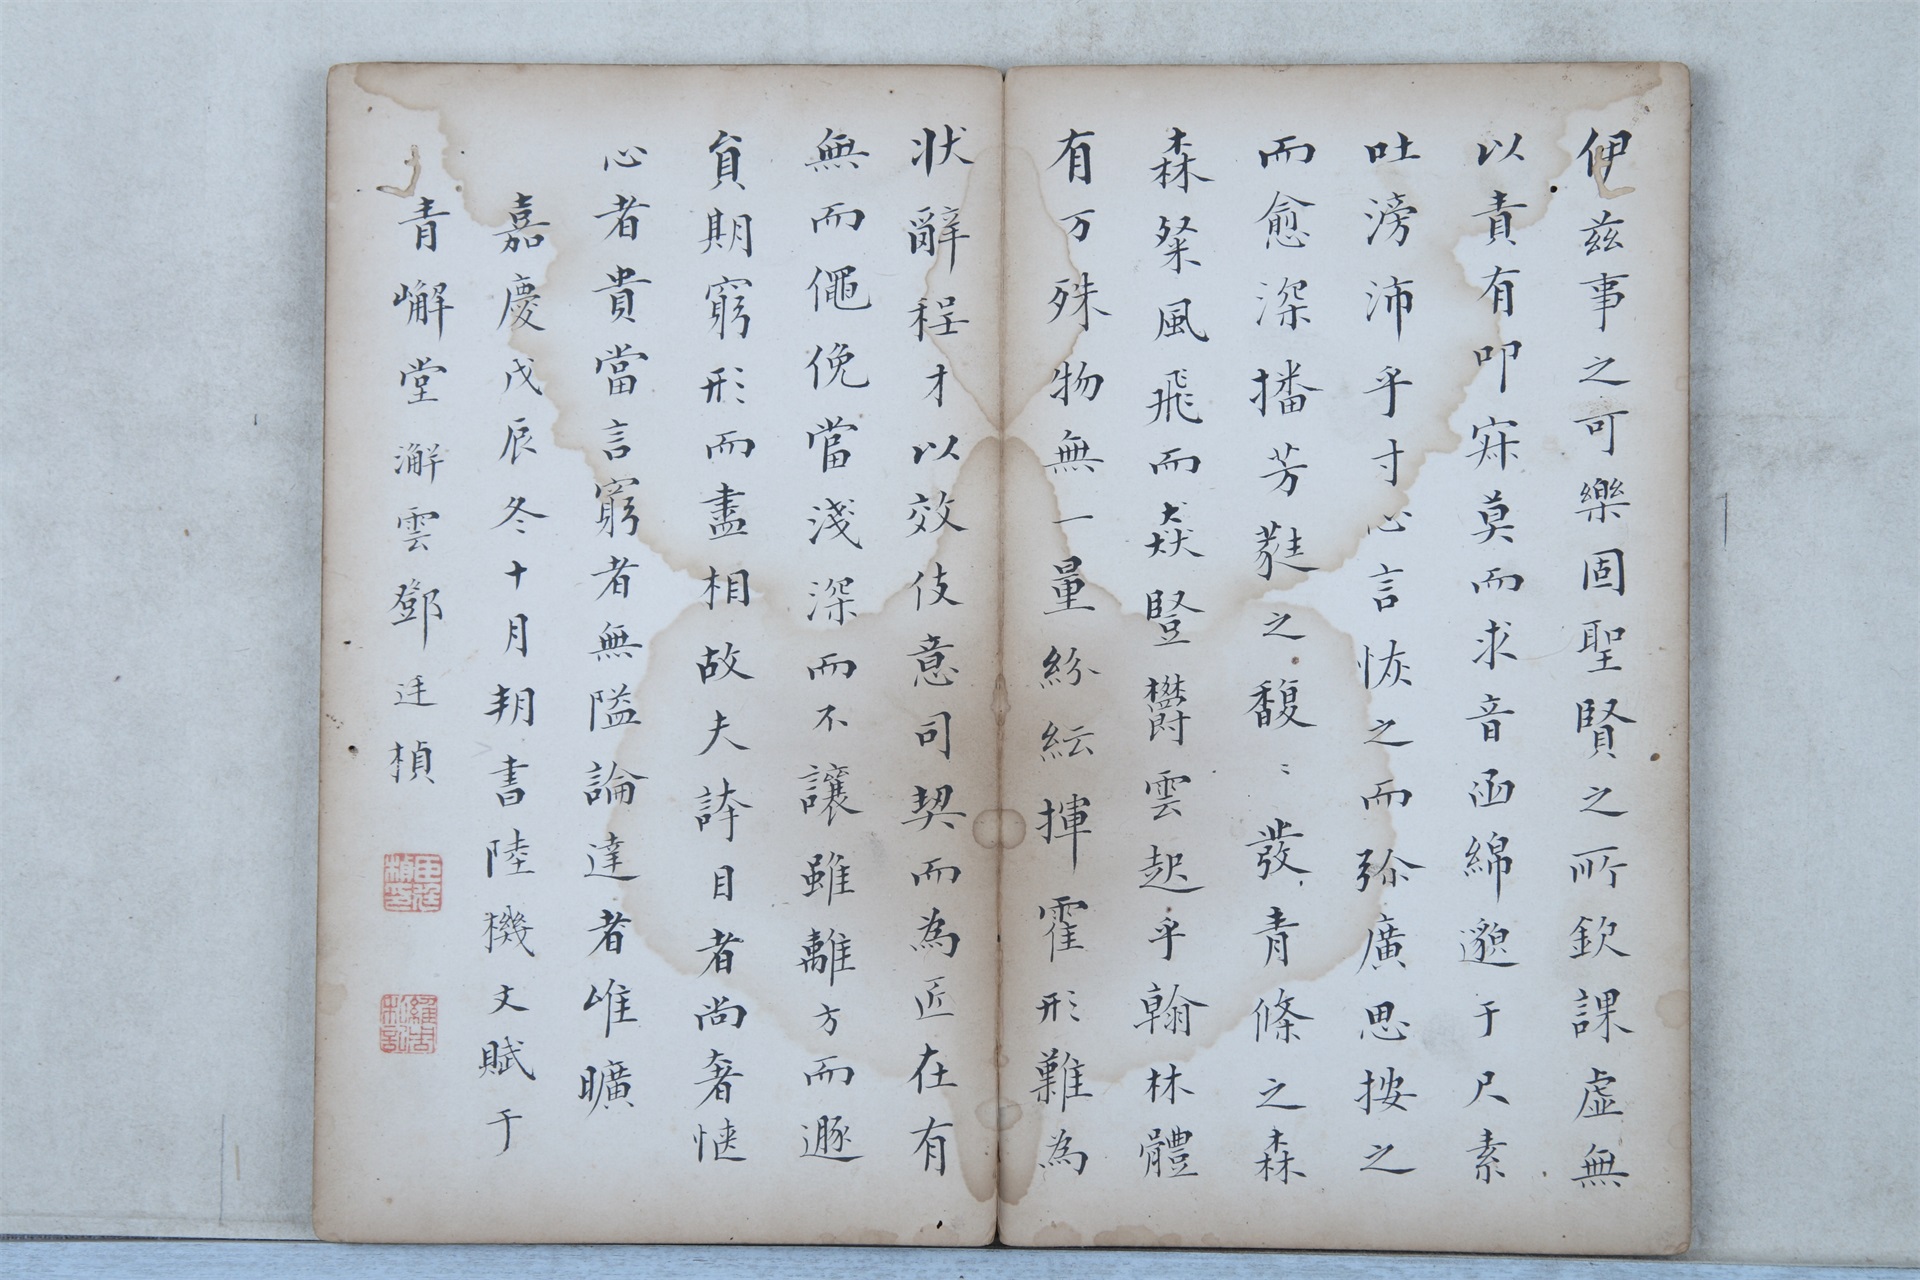 伊茲事之可樂固聖賢之所欽課虛無
以責有叩寂莫而求音函綿邈于尺素
吐滂沛乎寸心言恢之而弥廣思按之
而愈深播芳蕤之馥〻發青條之森
森粲風飛而猋豎鬱雲起乎翰林體
有万殊物無一量紛紜揮霍形難為
狀辭程才以效伎意司契而為匠在有
無而僶俛當淺深而不讓雖離方而遯
員期窮形而盡相故夫誇目者尚奢愜
心者貴當言窮者無隘論達者唯曠
嘉慶戊辰冬十月朔書陸機文賦于
青嶰堂澥雲鄧廷楨
臣廷楨印